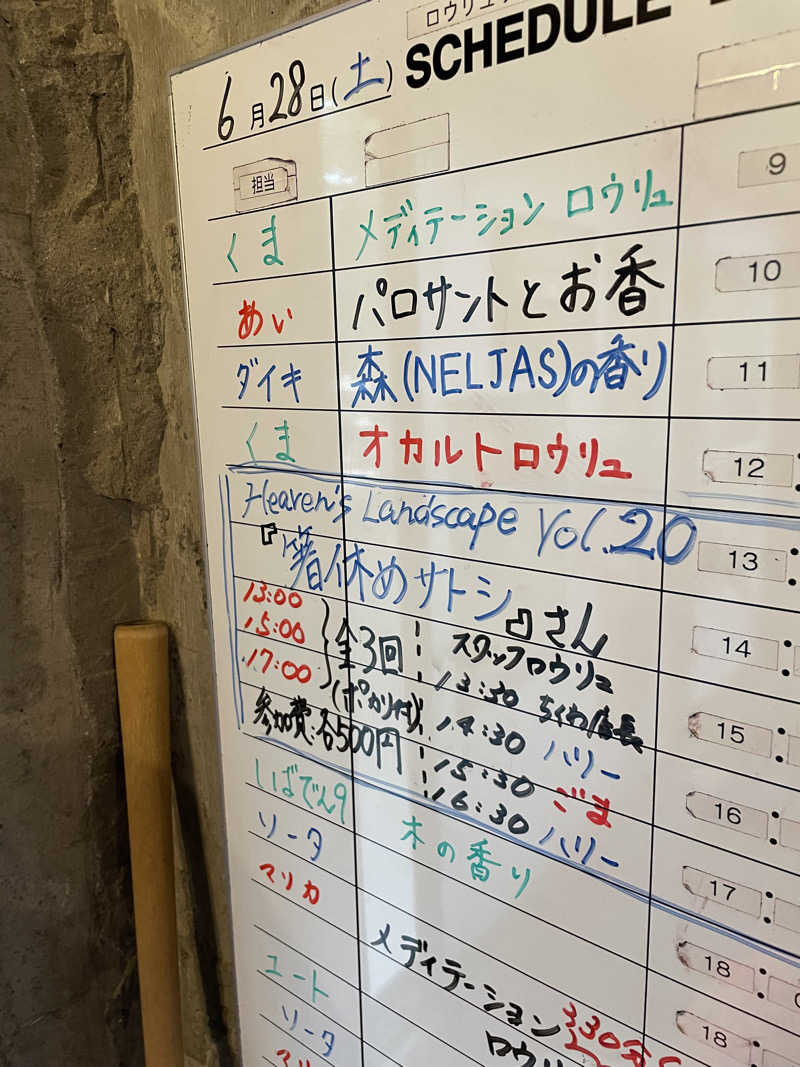 ロウリュ
SCHEDULE
6月28日(土)
担当
くま メディテーション ロウリュ 9
めい パロサントとお香 10
ダイキ 森(NELJAS)の香り 11
くま オカルトロウリュ 12
Heaven's Landscape Vol.20
『箸休めサトシ』さん 13:
13:00
15:00
17:00
全3回
(ポカリ付)
参加費:各500円
スタッフロウリュ 14:
13:30 ちくわ店長
14:30 ハリー 15:
15:30 ごま
16:30 ハリー 16:
しばでん9 木の香り 17:
ソータ
マリカ 18:
メディテーション
ユート
ソータ 18:
330分